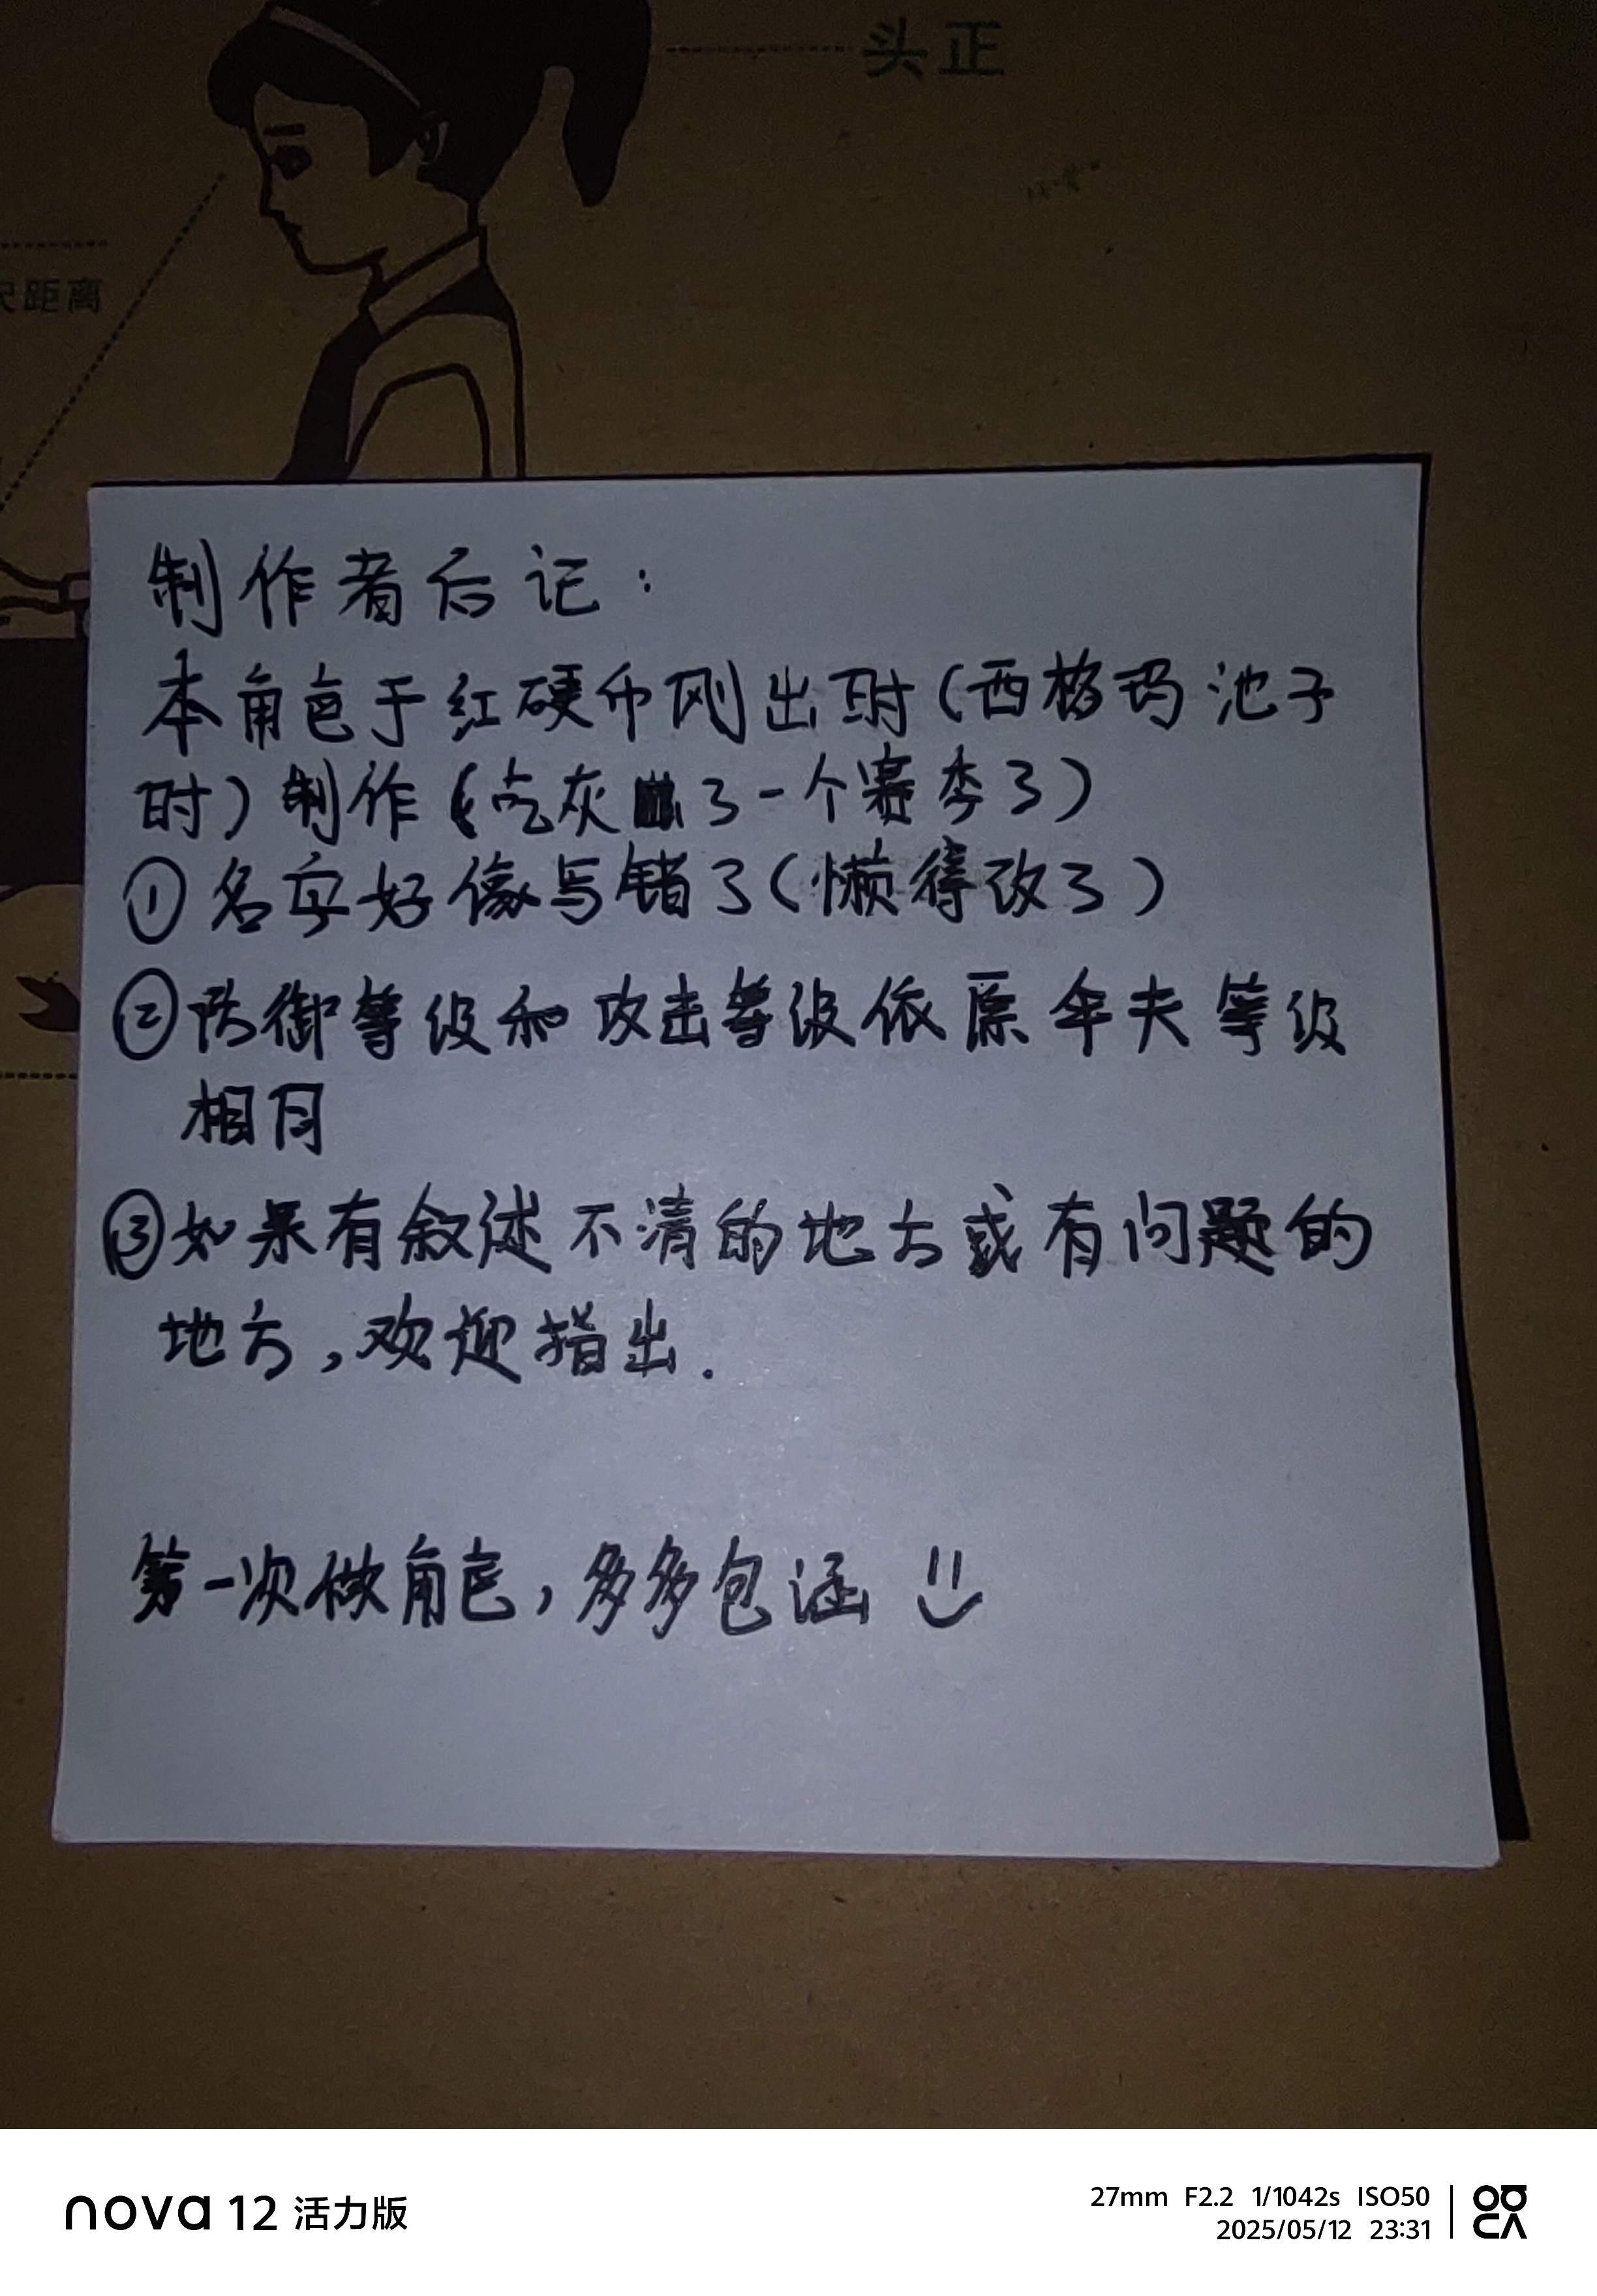 头正
尺距离
制作者后记：
本角色于红硬币刚出时（西格玛池子
时）制作（吃灰了一个赛季了）
①名字好像写错了（懒得改了）
②防御等级和攻击等级依原伞夫等级
相同
③如果有叙述不清的地方或有问题的
地方，欢迎指出.
第一次做角色，多多包涵
nova 12 活力版
27mm F2.2 1/1042s ISO50
2025/05/12 23:31